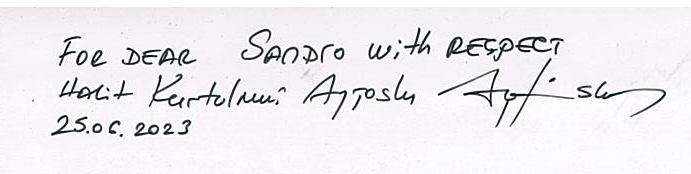 FOR DEAR SANDRO with RESPECT
Halit Kurtulmuş Aytoslu
25.06.2023